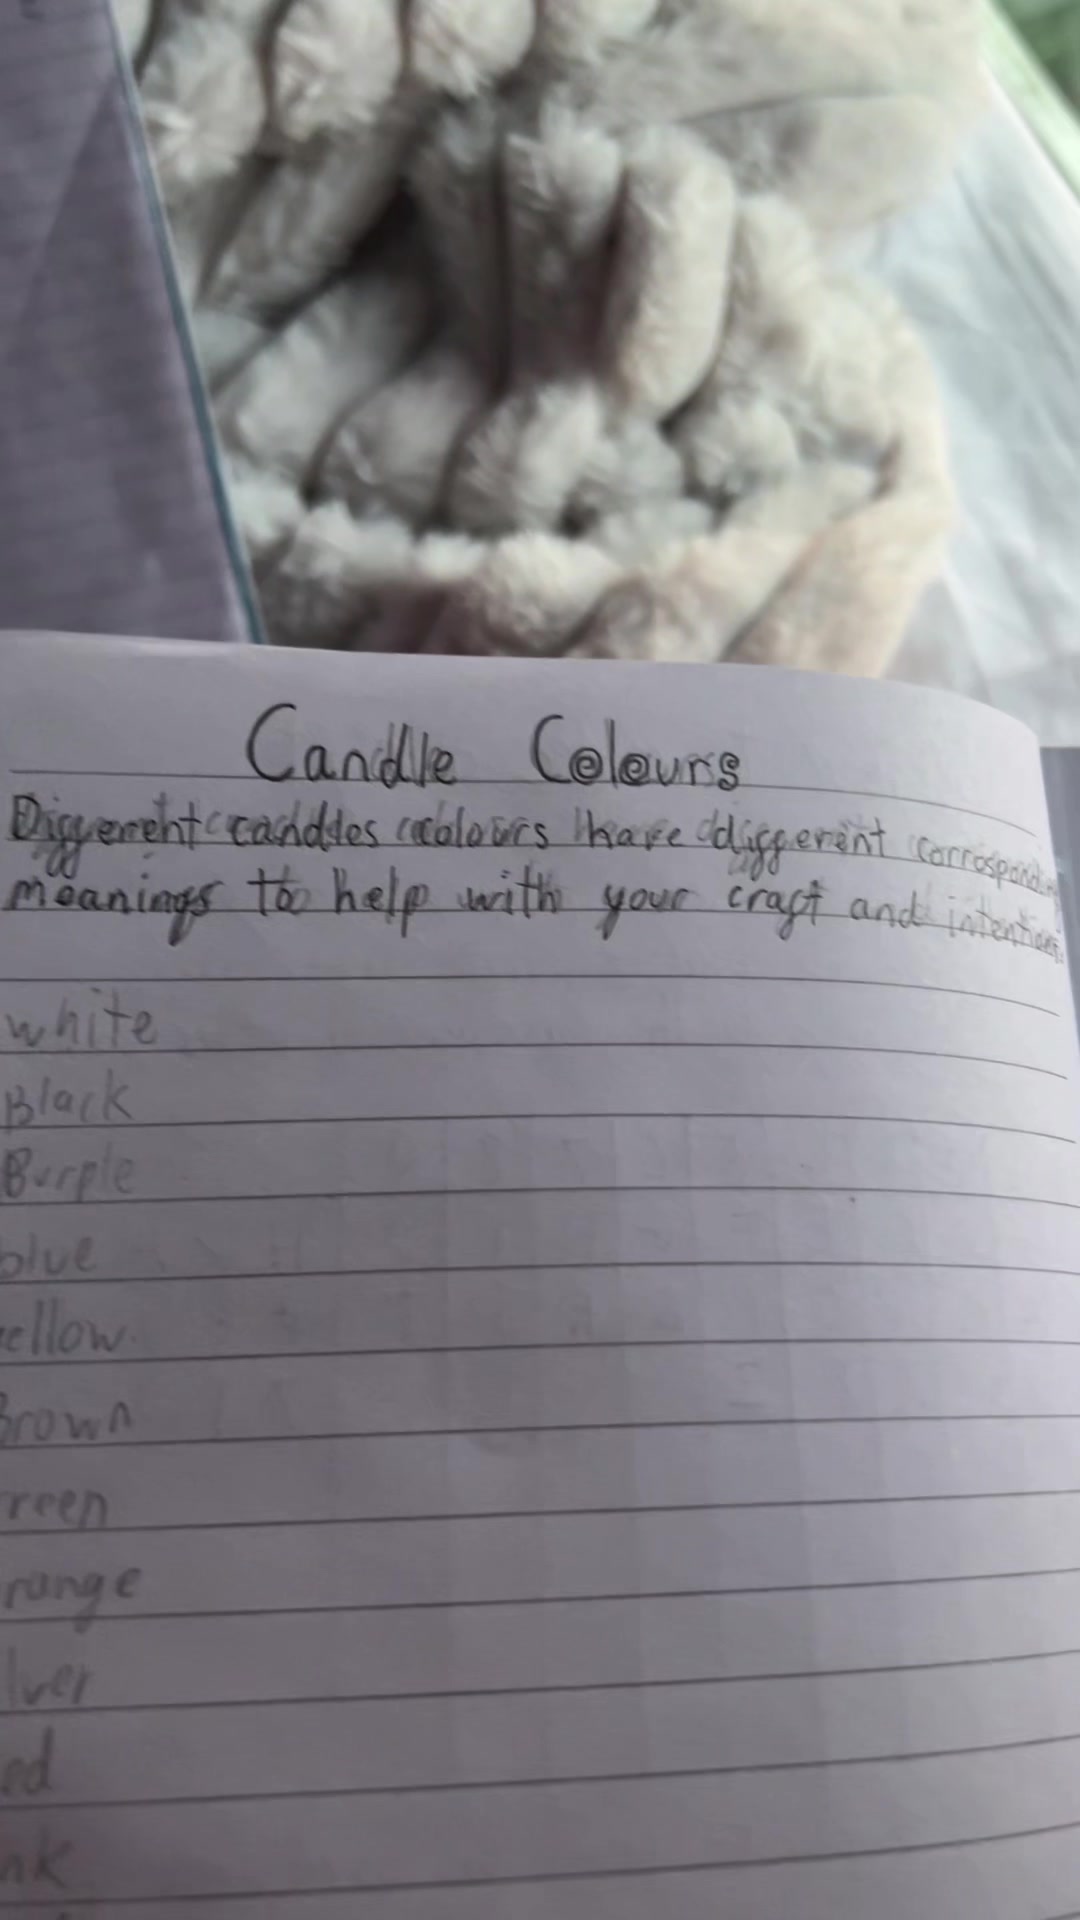 Candle Colours
Different candles colours have different corrosponding
meanings to help with your craft and intentions.
white
Black
Purple
blue
ellow
Brown
reen
range
lver
ed
nk